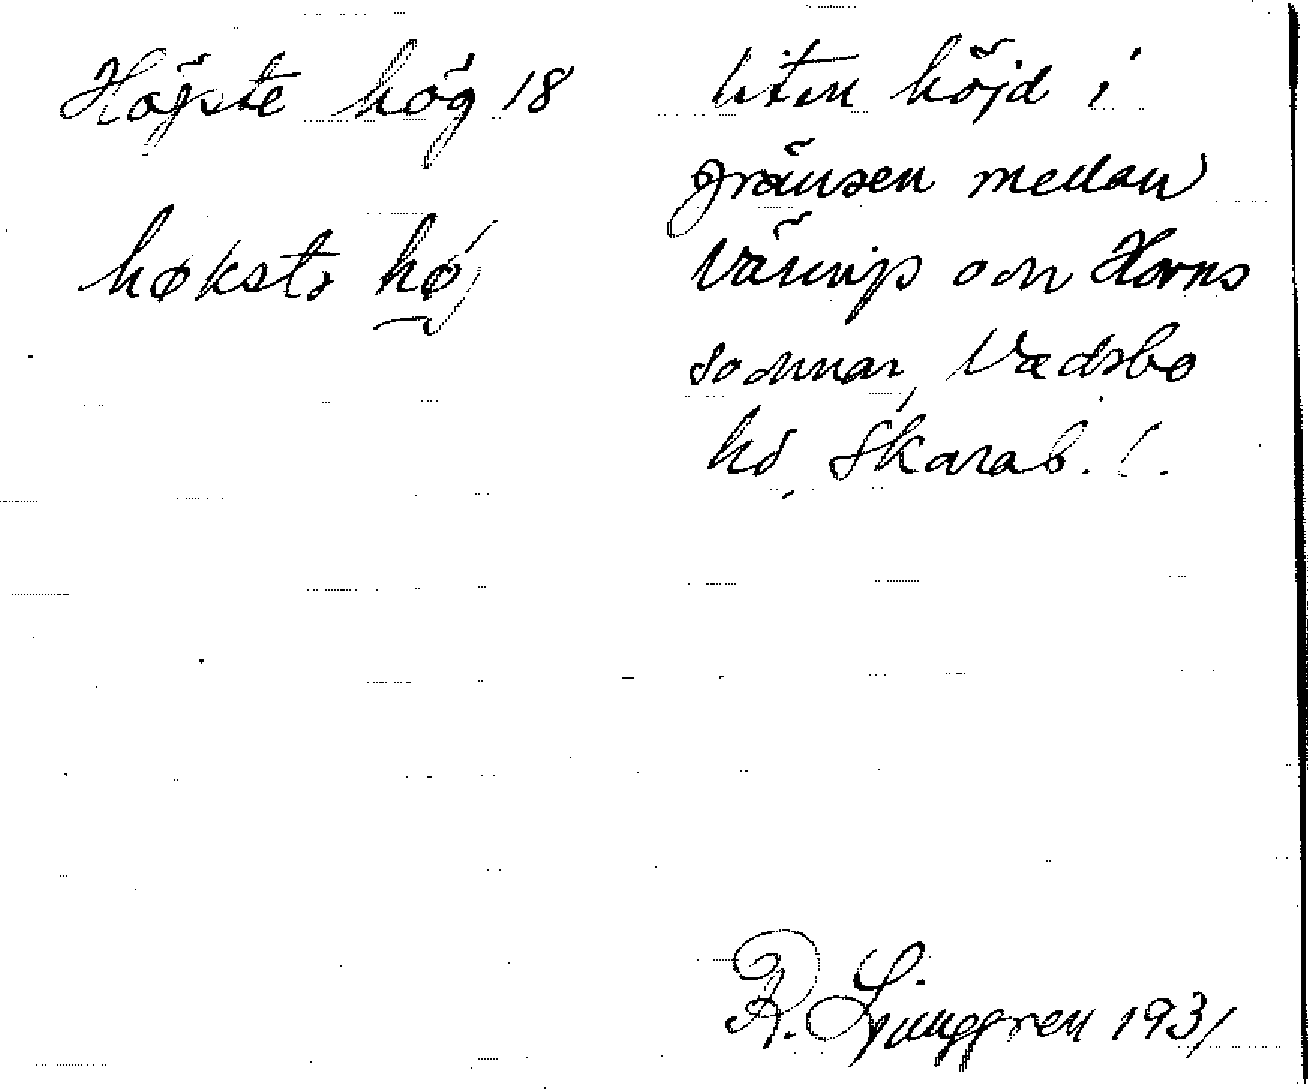 Högste hög 18
høksts hǿj
liten höjd i
gränsen mellan
Värings och Horns
socknar, Vadsbo
hd, Skarab. l.
R. Ljunggren 1931